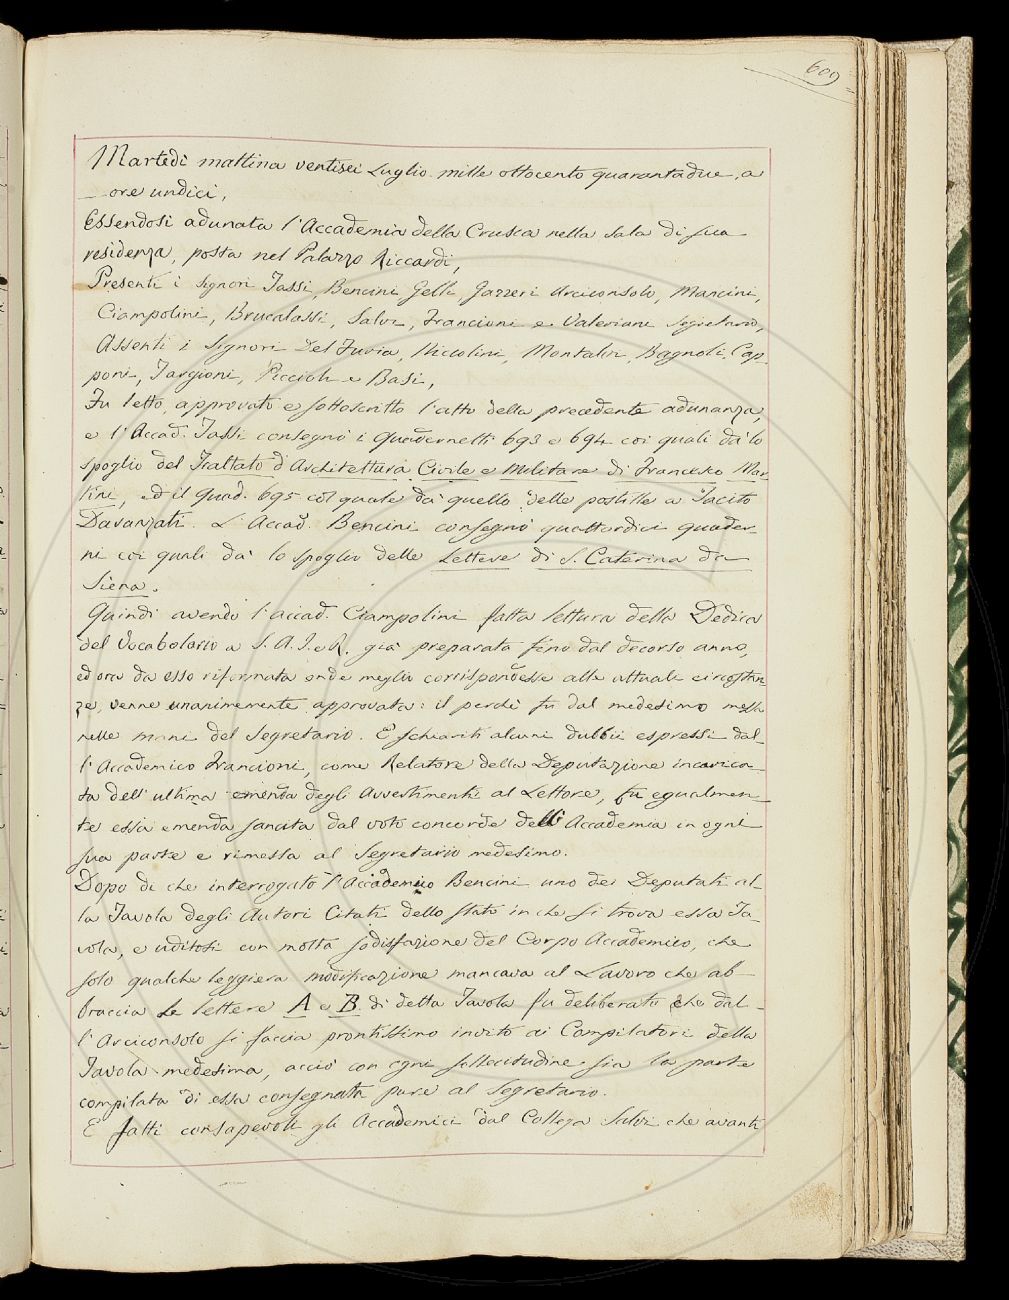 609
Martedì mattina ventisei Luglio mille ottocento quarantadue, a
ore undici,
Essendosi adunata l'Accademia della Crusca nella sala di sua
residenza, posta nel Palazzo Riccardi,
Presenti i Signori Tassi, Bencini, Gelli, Gazzeri Arciconsolo, Mancini,
Ciampolini, Brucalassi, Salvi, Francioni e Valeriani Segretario,
Assenti i Signori Del Furia, Niccolini, Montalvi, Bagnoli, Cap-
poni, Targioni, Piccioli e Basi,
Fu letto, approvato e sottoscritto l'atto della precedente adunanza,
e l'Accad. Tassi consegnò i Quadernetti 693 e 694 coi quali dà lo
spoglio del Trattato d'Architettura Civile e Militare di Francesco Mar-
tini, ed il Quad. 695 col quale dà quello delle postille a Tacito
Davanzati. L'Accad. Bencini consegnò quattordici quader-
ni coi quali dà lo spoglio delle Lettere di S. Caterina da
Siena.
Quindi avendo l'accad. Ciampolini fatta lettura della Dedica
del Vocabolario a S. A. I. e R. già preparata fino dal decorso anno,
ed ora da esso riformata onde meglio corrispondesse alle attuali circostan-
ze, venne unanimemente approvata: il perchè fu dal medesimo messa
nelle mani del Segretario. E schiariti alcuni dubbii espressi dal-
l'Accademico Francioni, come Relatore della Deputazione incarica-
ta dell'ultima emenda degli Avvertimenti al Lettore, fu egualmen-
te essa emenda sancita dal voto concorde dell'Accademia in ogni
sua parte e rimessa al Segretario medesimo.
Dopo di che interrogato l'Accademico Bencini uno dei Deputati al-
la Tavola degli Autori Citati dello stato in che si trova essa Ta-
vola, e uditosi con molta sodisfazione del Corpo Accademico, che
solo qualche leggiera modificazione mancava al Lavoro che ab-
braccia le lettere A e B di detta Tavola fu deliberato che dal-
l'Arciconsolo si faccia prontissimo invito ai Compilatori della
Tavola medesima, acciò con ogni sollecitudine sia la parte
compilata di essa consegnata pure al Segretario.
E fatti consapevoli gli Accademici dal Collega Salvi che avanti